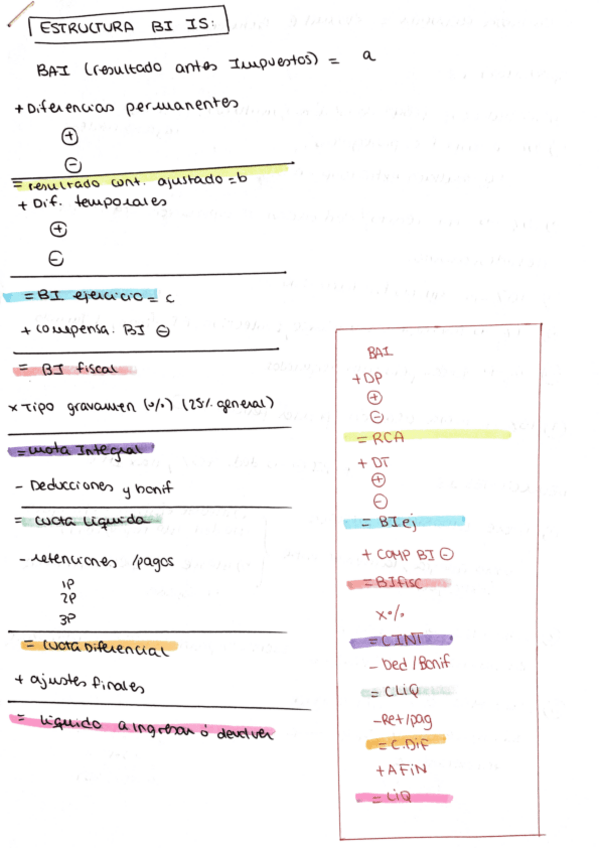 ESTRUCTURA BI IS:
BAI (resultado antes Impuestos) = a
+ Diferencias permanentes
⊕
⊖
= resultado cont. ajustado = b
+ Dif. temporales
⊕
⊖
= BI ejercicio = c
+ compensa. BI ⊖
= BI fiscal
x Tipo gravamen (%) (25% general)
= cuota Integral
- Deducciones y bonif
= cuota líquida
- retenciones /pagos
1P
2P
3P
= cuota Diferencial
+ ajustes finales
= líquido a ingresar ó devolver
BAI
+ DP
⊕
⊖
= RCA
+ DT
⊕
⊖
= BI ej
+ COMP BI ⊖
= BI fisc
x %
= CINT
- Ded / Bonif
= CLIQ
- Ret/pag
= C.Dif
+ AFIN
= LIQ